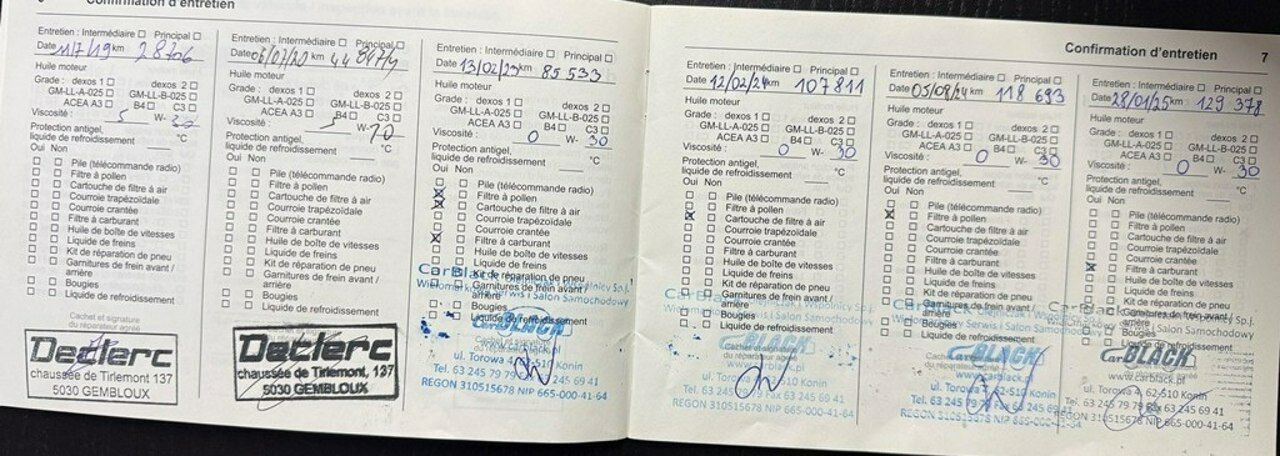 Confirmation d'entretien
Entretien : Intermédiaire ☐ Principal ☐
Date 11/7/19 km 28706
Huile moteur
Grade : dexos 1 ☐ dexos 2 ☐
GM-LL-A-025 ☐ GM-LL-B-025 ☐
ACEA A3 ☐ B4 ☐ C3 ☐
Viscosité : 5 W- 30
Protection antigel,
liquide de refroidissement °C
Oui Non
☐ ☐ Pile (télécommande radio)
☐ ☐ Filtre à pollen
☐ ☐ Cartouche de filtre à air
☐ ☐ Courroie trapézoïdale
☐ ☐ Courroie crantée
☐ ☐ Filtre à carburant
☐ ☐ Huile de boîte de vitesses
☐ ☐ Liquide de freins
☐ ☐ Kit de réparation de pneu
☐ ☐ Garnitures de frein avant /
arrière
☐ ☐ Bougies
☐ ☐ Liquide de refroidissement
Cachet et signature
du réparateur agréé
Declerc
chaussée de Tirlemont 137
5030 GEMBLOUX
Entretien : Intermédiaire ☐ Principal ☐
Date 06/02/20 km
Huile moteur
Grade : dexos 1 ☐ dexos 2 ☐
GM-LL-A-025 ☐ GM-LL-B-025 ☐
ACEA A3 ☐ B4 ☐ C3 ☐
Viscosité : 5 W-
Protection antigel,
liquide de refroidissement °C
Oui Non
☐ ☐ Pile (télécommande radio)
☐ ☐ Filtre à pollen
☐ ☐ Cartouche de filtre à air
☐ ☐ Courroie trapézoïdale
☐ ☐ Courroie crantée
☐ ☐ Filtre à carburant
☐ ☐ Huile de boîte de vitesses
☐ ☐ Liquide de freins
☐ ☐ Kit de réparation de pneu
☐ ☐ Garnitures de frein avant /
arrière
☐ ☐ Bougies
☐ ☐ Liquide de refroidissement
Declerc
chaussée de Tirlemont, 137
5030 GEMBLOUX
Entretien : Intermédiaire ☐ Principal ☐
Date 13/02/23 km 85 533
Huile moteur
Grade : dexos 1 ☐ dexos 2 ☐
GM-LL-A-025 ☐ GM-LL-B-025 ☐
ACEA A3 ☐ B4 ☐ C3 ☐
Viscosité : 0 W- 30
Protection antigel,
liquide de refroidissement °C
Oui Non
☐ ☐ Pile (télécommande radio)
☒ ☐ Filtre à pollen
☒ ☐ Cartouche de filtre à air
☐ ☐ Courroie trapézoïdale
☐ ☐ Courroie crantée
☒ ☐ Filtre à carburant
☐ ☐ Huile de boîte de vitesses
☐ ☐ Liquide de freins
☐ ☐ Kit de réparation de pneu
☐ ☐ Garnitures de frein avant /
arrière
☐ ☐ Bougies
☐ ☐ Liquide de refroidissement
CarBlack Wspólnicy Sp.j.
Wielomarkowy Serwis i Salon Samochodowy
CarBLACK
www.carblack.pl
ul. Torowa
Tel. 63 245 79 79 Fax 63 245 69 41
REGON 310515678 NIP 665-000-41-64
Confirmation d'entretien 7
Entretien : Intermédiaire ☐ Principal ☐
Date 12/02/24 km 107 811
Huile moteur
Grade : dexos 1 ☐ dexos 2 ☐
GM-LL-A-025 ☐ GM-LL-B-025 ☐
ACEA A3 ☐ B4 ☐ C3 ☐
Viscosité : 0 W- 30
Protection antigel,
liquide de refroidissement °C
Oui Non
☐ ☐ Pile (télécommande radio)
☐ ☐ Filtre à pollen
☒ ☐ Cartouche de filtre à air
☐ ☐ Courroie trapézoïdale
☐ ☐ Courroie crantée
☐ ☐ Filtre à carburant
☐ ☐ Huile de boîte de vitesses
☐ ☐ Liquide de freins
☐ ☐ Kit de réparation de pneu
☐ ☐ Garnitures de frein avant /
arrière
☐ ☐ Bougies
☐ ☐ Liquide de refroidissement
Cachet et signature
du réparateur agréé
CarBlack Wspólnicy Sp.j.
Wielomarkowy Serwis i Salon Samochodowy
CarBLACK
www.carblack.pl
ul. Torowa 4, 62-510 Konin
Tel. 63 245 79 79 Fax 63 245 69 41
REGON 310515678 NIP 665-000-41-64
Entretien : Intermédiaire ☐ Principal ☐
Date 05/08/24 km 118 693
Huile moteur
Grade : dexos 1 ☐ dexos 2 ☐
GM-LL-A-025 ☐ GM-LL-B-025 ☐
ACEA A3 ☐ B4 ☐ C3 ☐
Viscosité : 0 W- 30
Protection antigel,
liquide de refroidissement °C
Oui Non
☐ ☐ Pile (télécommande radio)
☒ ☐ Filtre à pollen
☐ ☐ Cartouche de filtre à air
☐ ☐ Courroie trapézoïdale
☐ ☐ Courroie crantée
☐ ☐ Filtre à carburant
☐ ☐ Huile de boîte de vitesses
☐ ☐ Liquide de freins
☐ ☐ Kit de réparation de pneu
☐ ☐ Garnitures de frein avant /
arrière
☐ ☐ Bougies
☐ ☐ Liquide de refroidissement
CarBLACK
www.carblack.pl
ul. Torowa 62-510 Konin
Tel. 63 245 79 79 Fax 63 245 69 41
REGON 310515678 NIP 665-000-41-64
Entretien : Intermédiaire ☐ Principal ☐
Date 28/01/25 km 129 378
Huile moteur
Grade : dexos 1 ☐ dexos 2 ☐
GM-LL-A-025 ☐ GM-LL-B-025 ☐
ACEA A3 ☐ B4 ☐ C3 ☐
Viscosité : 0 W- 30
Protection antigel,
liquide de refroidissement °C
Oui Non
☐ ☐ Pile (télécommande radio)
☐ ☐ Filtre à pollen
☐ ☐ Cartouche de filtre à air
☐ ☐ Courroie trapézoïdale
☐ ☐ Courroie crantée
☒ ☐ Filtre à carburant
☐ ☐ Huile de boîte de vitesses
☐ ☐ Liquide de freins
☐ ☐ Kit de réparation de pneu
☐ ☐ Garnitures de frein avant /
arrière
☐ ☐ Bougies
☐ ☐ Liquide de refroidissement
CarBlack
Serwis i Salon Samochodowy
CarBLACK
www.carblack.pl
ul. Torowa 4, 62-510 Konin
Tel. 63 245 79 79 Fax 63 245 69 41
REGON 310515678 NIP 665-000-41-64